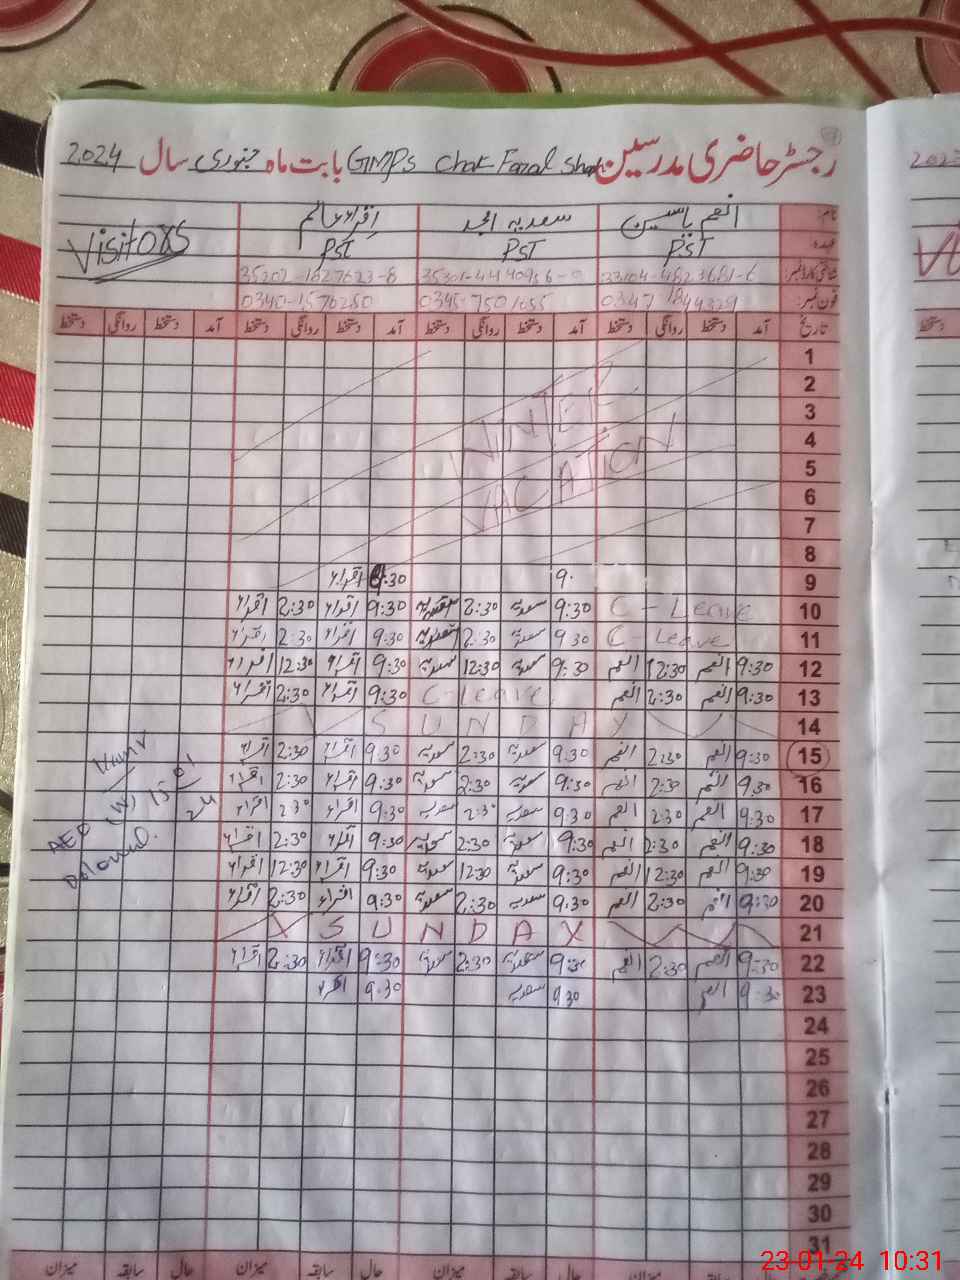 رجسٹر حاضری مدرسین GMPS Chak Fazal Shah بابت ماہ جنوری سال 2024
نام: انعم یاسین سعدیہ امجد اقراء عالم Visitors
عہدہ PST PST PST
شناختی کارڈ نمبر:
فون نمبر:
تاریخ آمد دستخط روانگی دستخط آمد دستخط روانگی دستخط آمد دستخط روانگی دستخط آمد دستخط روانگی دستخط
1
2
3
4
5
6
7
8
WINTER
VACATION
9 9. 9:30 اقراء
10 C-Leave 9:30 سعدیہ 2:30 سعدیہ 9:30 اقراء 2:30 اقراء
11 C-Leave 9:30 سعدیہ 2:30 سعدیہ 9:30 اقراء 2:30 اقراء
12 9:30 انعم 12:30 انعم 9:30 سعدیہ 12:30 سعدیہ 9:30 اقراء 12:30 اقراء
13 9:30 انعم 2:30 انعم C-Leave 9:30 اقراء 2:30 اقراء
14 SUNDAY
15 9:30 انعم 2:30 انعم 9:30 سعدیہ 2:30 سعدیہ 9:30 اقراء 2:30 اقراء
16 9:30 انعم 2:30 انعم 9:30 سعدیہ 2:30 سعدیہ 9:30 اقراء 2:30 اقراء
17 9:30 انعم 2:30 انعم 9:30 سعدیہ 2:30 سعدیہ 9:30 اقراء 2:30 اقراء
18 9:30 انعم 2:30 انعم 9:30 سعدیہ 2:30 سعدیہ 9:30 اقراء 2:30 اقراء
19 9:30 انعم 12:30 انعم 9:30 سعدیہ 12:30 سعدیہ 9:30 اقراء 12:30 اقراء
20 9:30 انعم 2:30 انعم 9:30 سعدیہ 2:30 سعدیہ 9:30 اقراء 2:30 اقراء
21 SUNDAY
22 9:30 انعم 2:30 انعم 9:30 سعدیہ 2:30 سعدیہ 9:30 اقراء 2:30 اقراء
23 9:30 انعم 9:30 سعدیہ 9:30 اقراء
24
25
26
27
28
29
30
31
AEO (W) 15-01-24
حال سابقہ میزان حال سابقہ میزان حال سابقہ میزان
23-01-24 10:31